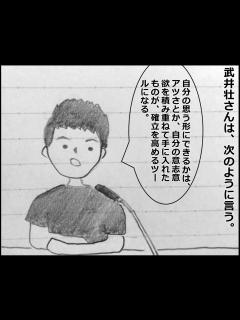 武井壮さんは、次のように言う。
自分の思う形にできるかは、
アツさとか、自分の意志意
欲を積み重ねて手に入れた
ものが、確立を高めるツー
ルになる。